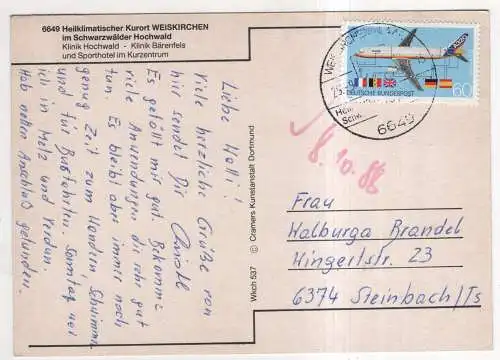 6649 Heilklimatischer Kurort WEISKIRCHEN
im Schwarzwälder Hochwald
Klinik Hochwald - Klinik Bärenfels
und Sporthotel im Kurzentrum
Liebe Walli!
Viele herzliche Grüße von
hier sendet Dir
Es gefällt mir gut. Bekomme
viele Anwendungen die sehr gut
tun. Es bleibt aber immer noch
genug Zeit zum Wandern Schwimmen
und für Busfahrten. Sonntag war
ich in Metz und Verdun.
Hab netten Anschluß gefunden.
Wkch 537 © Cramers Kunstanstalt Dortmund
A320
DEUTSCHE BUNDESPOST 60
6649
8.10.88
Frau
Walburga Brandel
Hingertstr. 23
6374 Steinbach/Ts